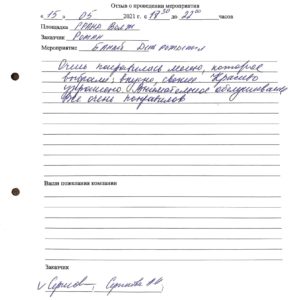 Отзыв о проведении мероприятия
« 15 » 05 2021 г. с 18 30 до 22 00 часов
Площадка Гранд Волга
Заказчик Роман
Мероприятие
Очень понравилось меню, которое
выбрали; вкусно, свежее. Красиво
украшено. Внимательное обслуживание
Все очень понравилось
Ваши пожелания компании
Заказчик